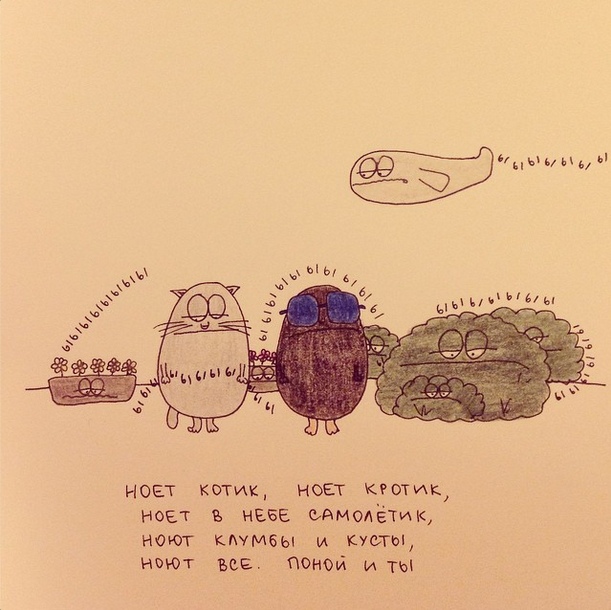 ы ы ы ы ы ы ы
ы ы ы ы ы ы ы ы ы
ы ы ы ы ы ы ы ы ы ы ы
ы ы ы ы ы ы ы ы
НОЕТ КОТИК, НОЕТ КРОТИК,
НОЕТ В НЕБЕ САМОЛЁТИК,
НОЮТ КЛУМБЫ И КУСТЫ,
НОЮТ ВСЕ. ПОНОЙ И ТЫ